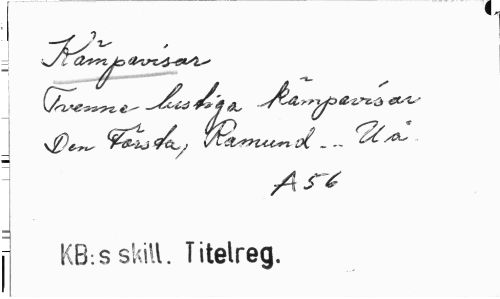 Kämpavisor
Tvenne lustiga kämpavisor
Den Första, Ramund... U å.
A 56
KB:s skill. Titelreg.